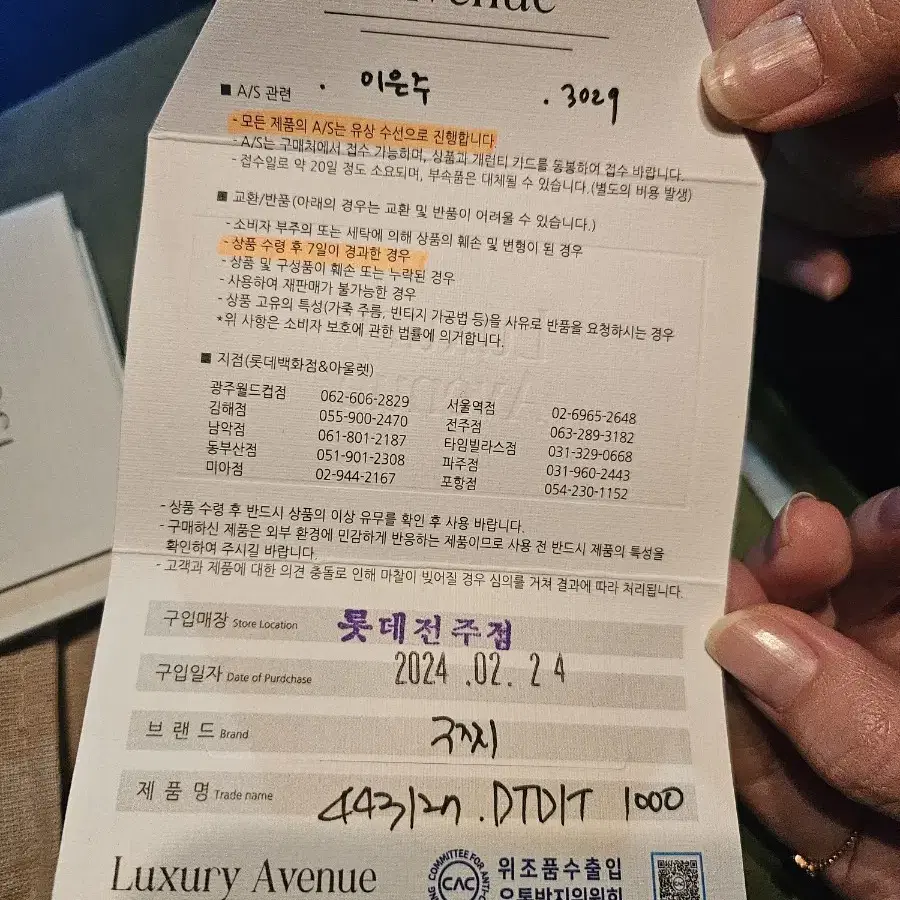 Avenue
이은주 . 3029
■ A/S 관련
- 모든 제품의 A/S는 유상 수선으로 진행합니다.
- A/S는 구매처에서 접수 가능하며, 상품과 개런티 카드를 동봉하여 접수 바랍니다.
- 접수일로 약 20일 정도 소요되며, 부속품은 대체될 수 있습니다.(별도의 비용 발생)
■ 교환/반품(아래의 경우는 교환 및 반품이 어려울 수 있습니다.)
- 소비자 부주의 또는 세탁에 의해 상품의 훼손 및 변형이 된 경우
- 상품 수령 후 7일이 경과한 경우
- 상품 및 구성품이 훼손 또는 누락된 경우
- 사용하여 재판매가 불가능한 경우
- 상품 고유의 특성(가죽 주름, 빈티지 가공법 등)을 사유로 반품을 요청하시는 경우
*위 사항은 소비자 보호에 관한 법률에 의거합니다.
■ 지점(롯데백화점&아울렛)
광주월드컵점 062-606-2829 서울역점 02-6965-2648
김해점 055-900-2470 전주점 063-289-3182
남악점 061-801-2187 타임빌라스점 031-329-0668
동부산점 051-901-2308 파주점 031-960-2443
미아점 02-944-2167 포항점 054-230-1152
- 상품 수령 후 반드시 상품의 이상 유무를 확인 후 사용 바랍니다.
- 구매하신 제품은 외부 환경에 민감하게 반응하는 제품이므로 사용 전 반드시 제품의 특성을
확인하여 주시길 바랍니다.
- 고객과 제품에 대한 의견 충돌로 인해 마찰이 빚어질 경우 심의를 거쳐 결과에 따라 처리됩니다.
구입매장 Store Location 롯데전주점
구입일자 Date of Purdchase 2024 .02. 24
브랜드 Brand 구찌
제품명 Trade name DTDIT 1000
Luxury Avenue
COMMITTEE FOR ANTI-
CAC
위조품수출입
유통방지위원회